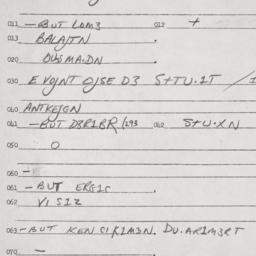 011 -BUT LOM3 012 +
013 BALAJTN
020 OUSMA.DN
030 EVOJNT OJSE D3 S+TU.1T /
040 ANTKEIGN
041 -BUT D3R1BR/193 042 S+U.XN
050 O
060 -
061 -BUT ERG1C
062 VISIZ
063 -BUT KEN CIKIM3N. DU.ARIM3RT
070 -